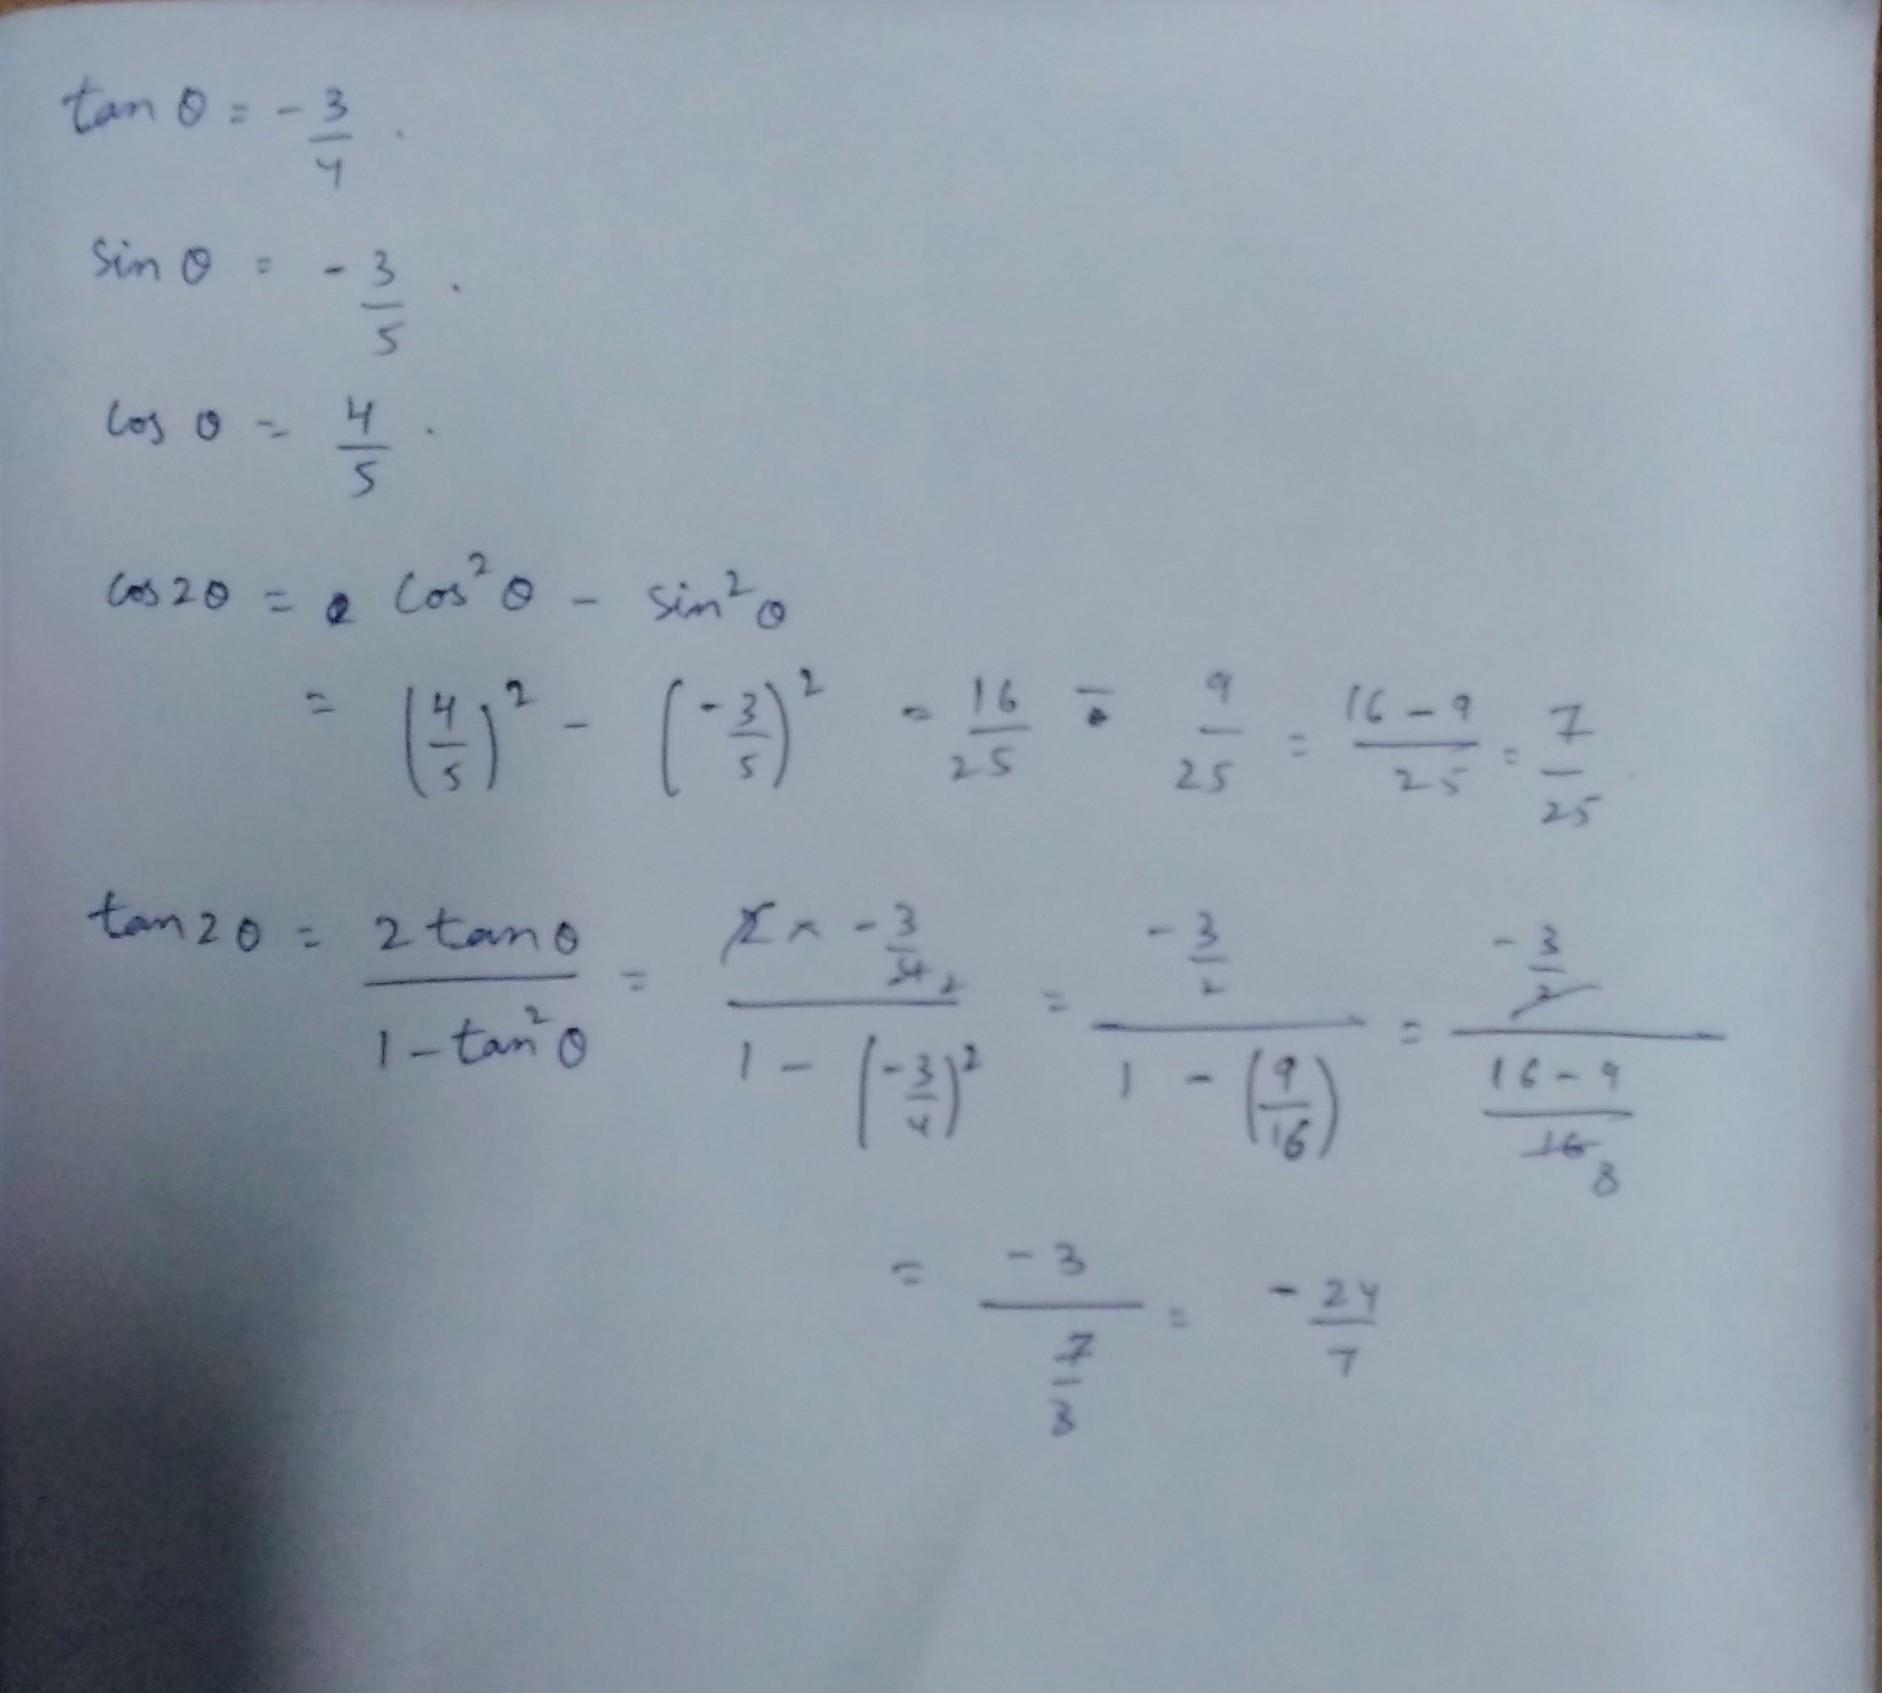 tan θ = - 3/4 .
sin θ = - 3/5 .
cos θ = 4/5 .
cos 2θ = cos² θ - sin² θ
= (4/5)² - (-3/5)² = 16/25 - 9/25 = (16 - 9)/25 = 7/25
tan 2θ = (2 tan θ)/(1 - tan² θ) = (2 × -3/4 2)/(1 - (-3/4)²) = (-3/2)/(1 - (9/16)) = (-3/2)/((16 - 9)/16 8)
= -3/(7/8) = - 24/7